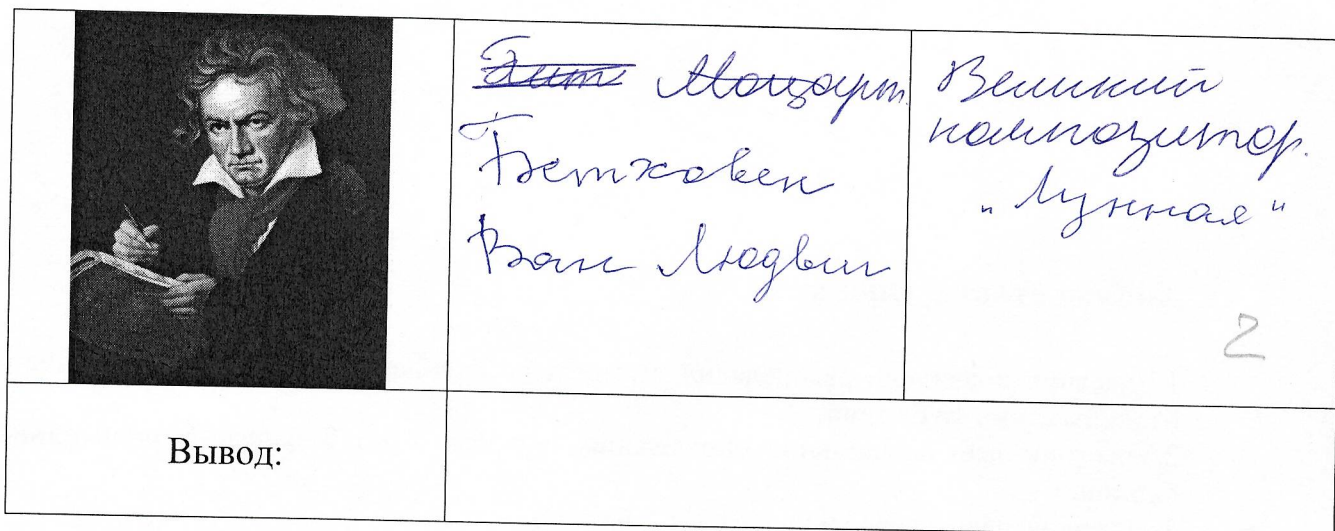 Моцарт.
Бетховен
Ван Людвиг
Великий
композитор.
„Лунная"
2
Вывод: